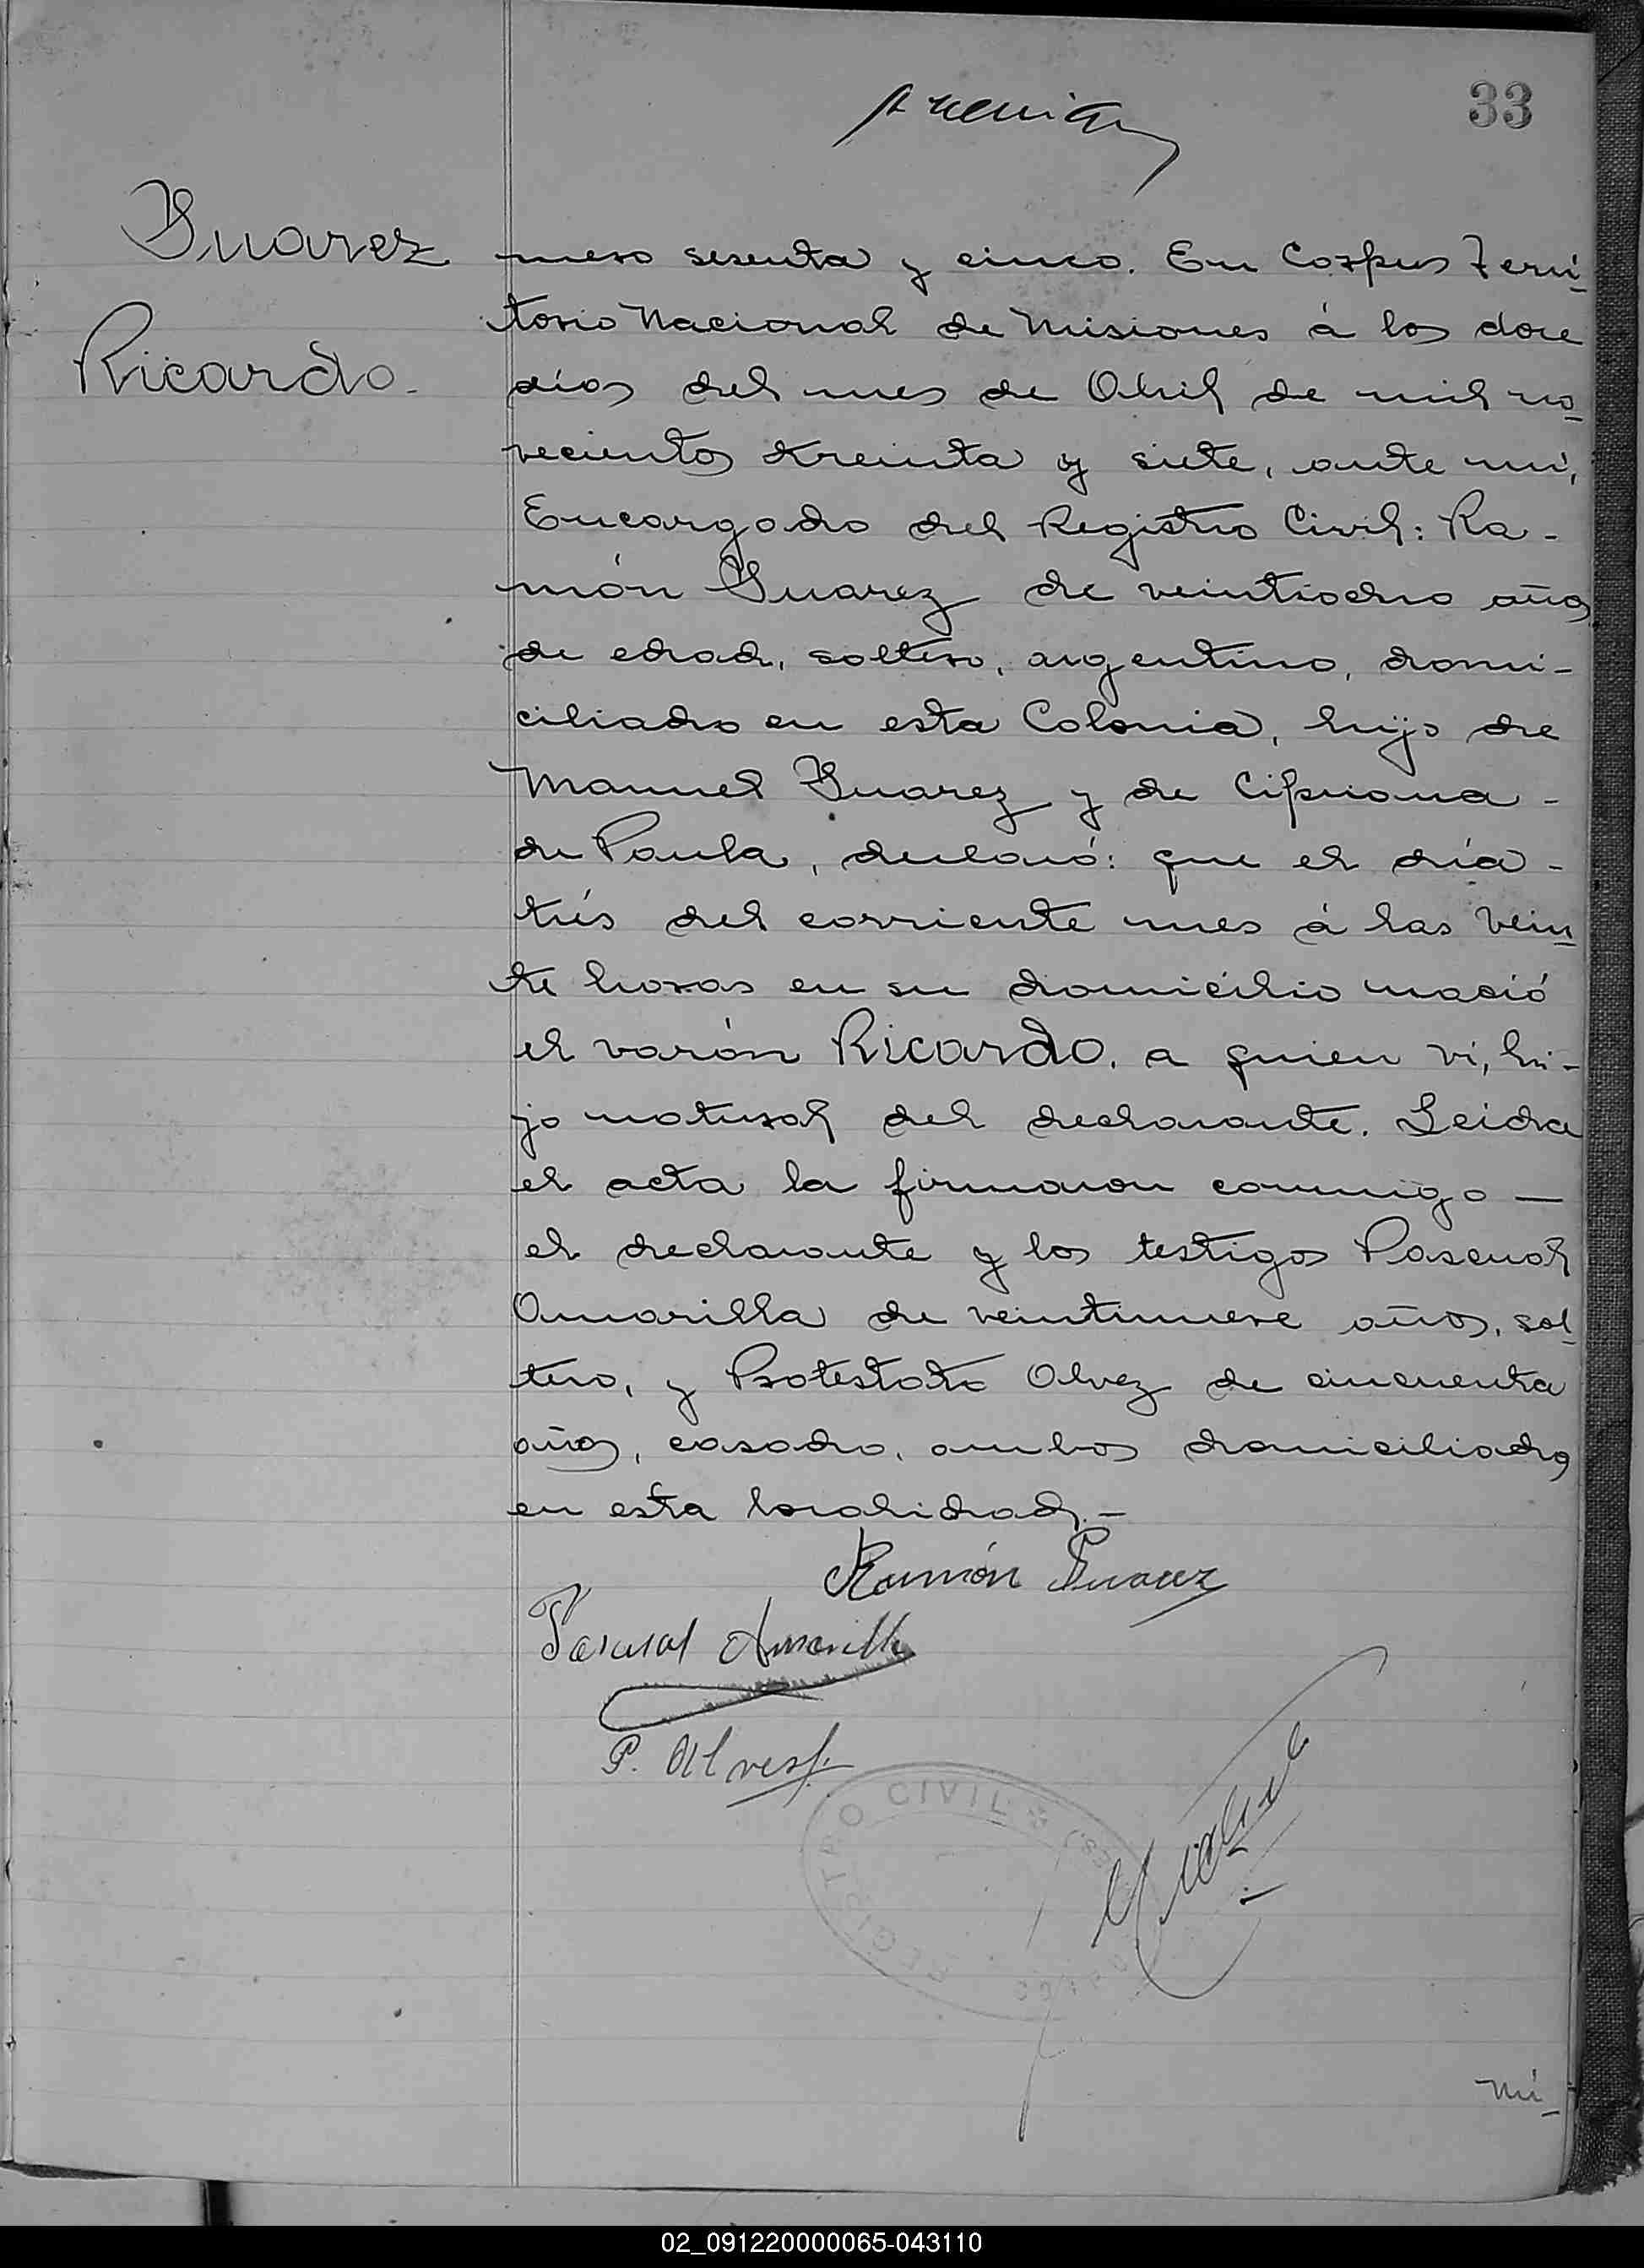 33
Suarez
Ricardo.
mero sesenta y cinco. En Corpus Terri-
torio Nacional de Misiones á los doce
días del mes de Abril de mil no-
vecientos treinta y siete, ante mí,
Encargado del Registro Civil: Ra-
món Suarez de veintiocho años
de edad, soltero, argentino, domi-
ciliado en esta Colonia, hijo de
Manuel Suarez y de Cipriana -
de Paula, declaró: que el día -
trés del corriente mes á las vein-
te horas en su domicilio nació
el varón Ricardo, a quien ví, hi-
jo natural del declarante. Leida
el acta la firmaron conmigo —
el declarante y los testigos Pascual
Amarilla de veintinueve años, sol-
tero, y Protestato Alvez de cincuenta
años, casado, ambos domiciliados
en esta localidad.-
Ramón Suarez
Pascual Amarilla
P. Alves
REGISTRO CIVIL
Nú-
02_091220000065-043110